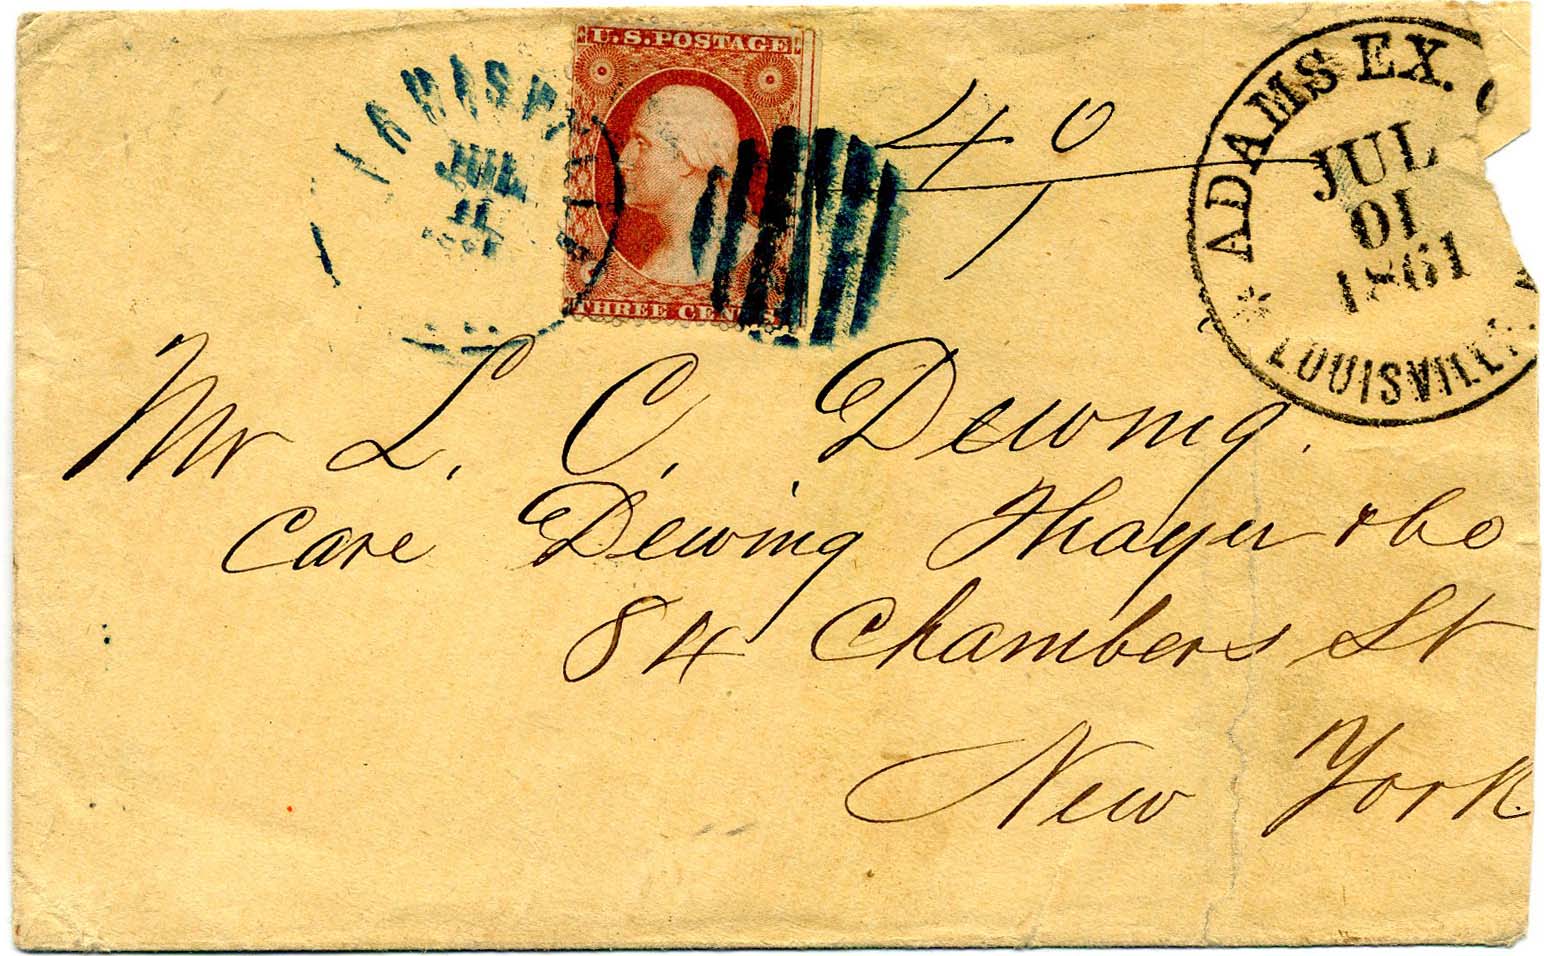 U.S. POSTAGE
THREE CENTS
JUL
ADAMS EX.
JUL
01
1861
LOUISVILLE
Mr L. C. Dewing.
Care Dewing Thayer & Co
84 Chambers St
New York